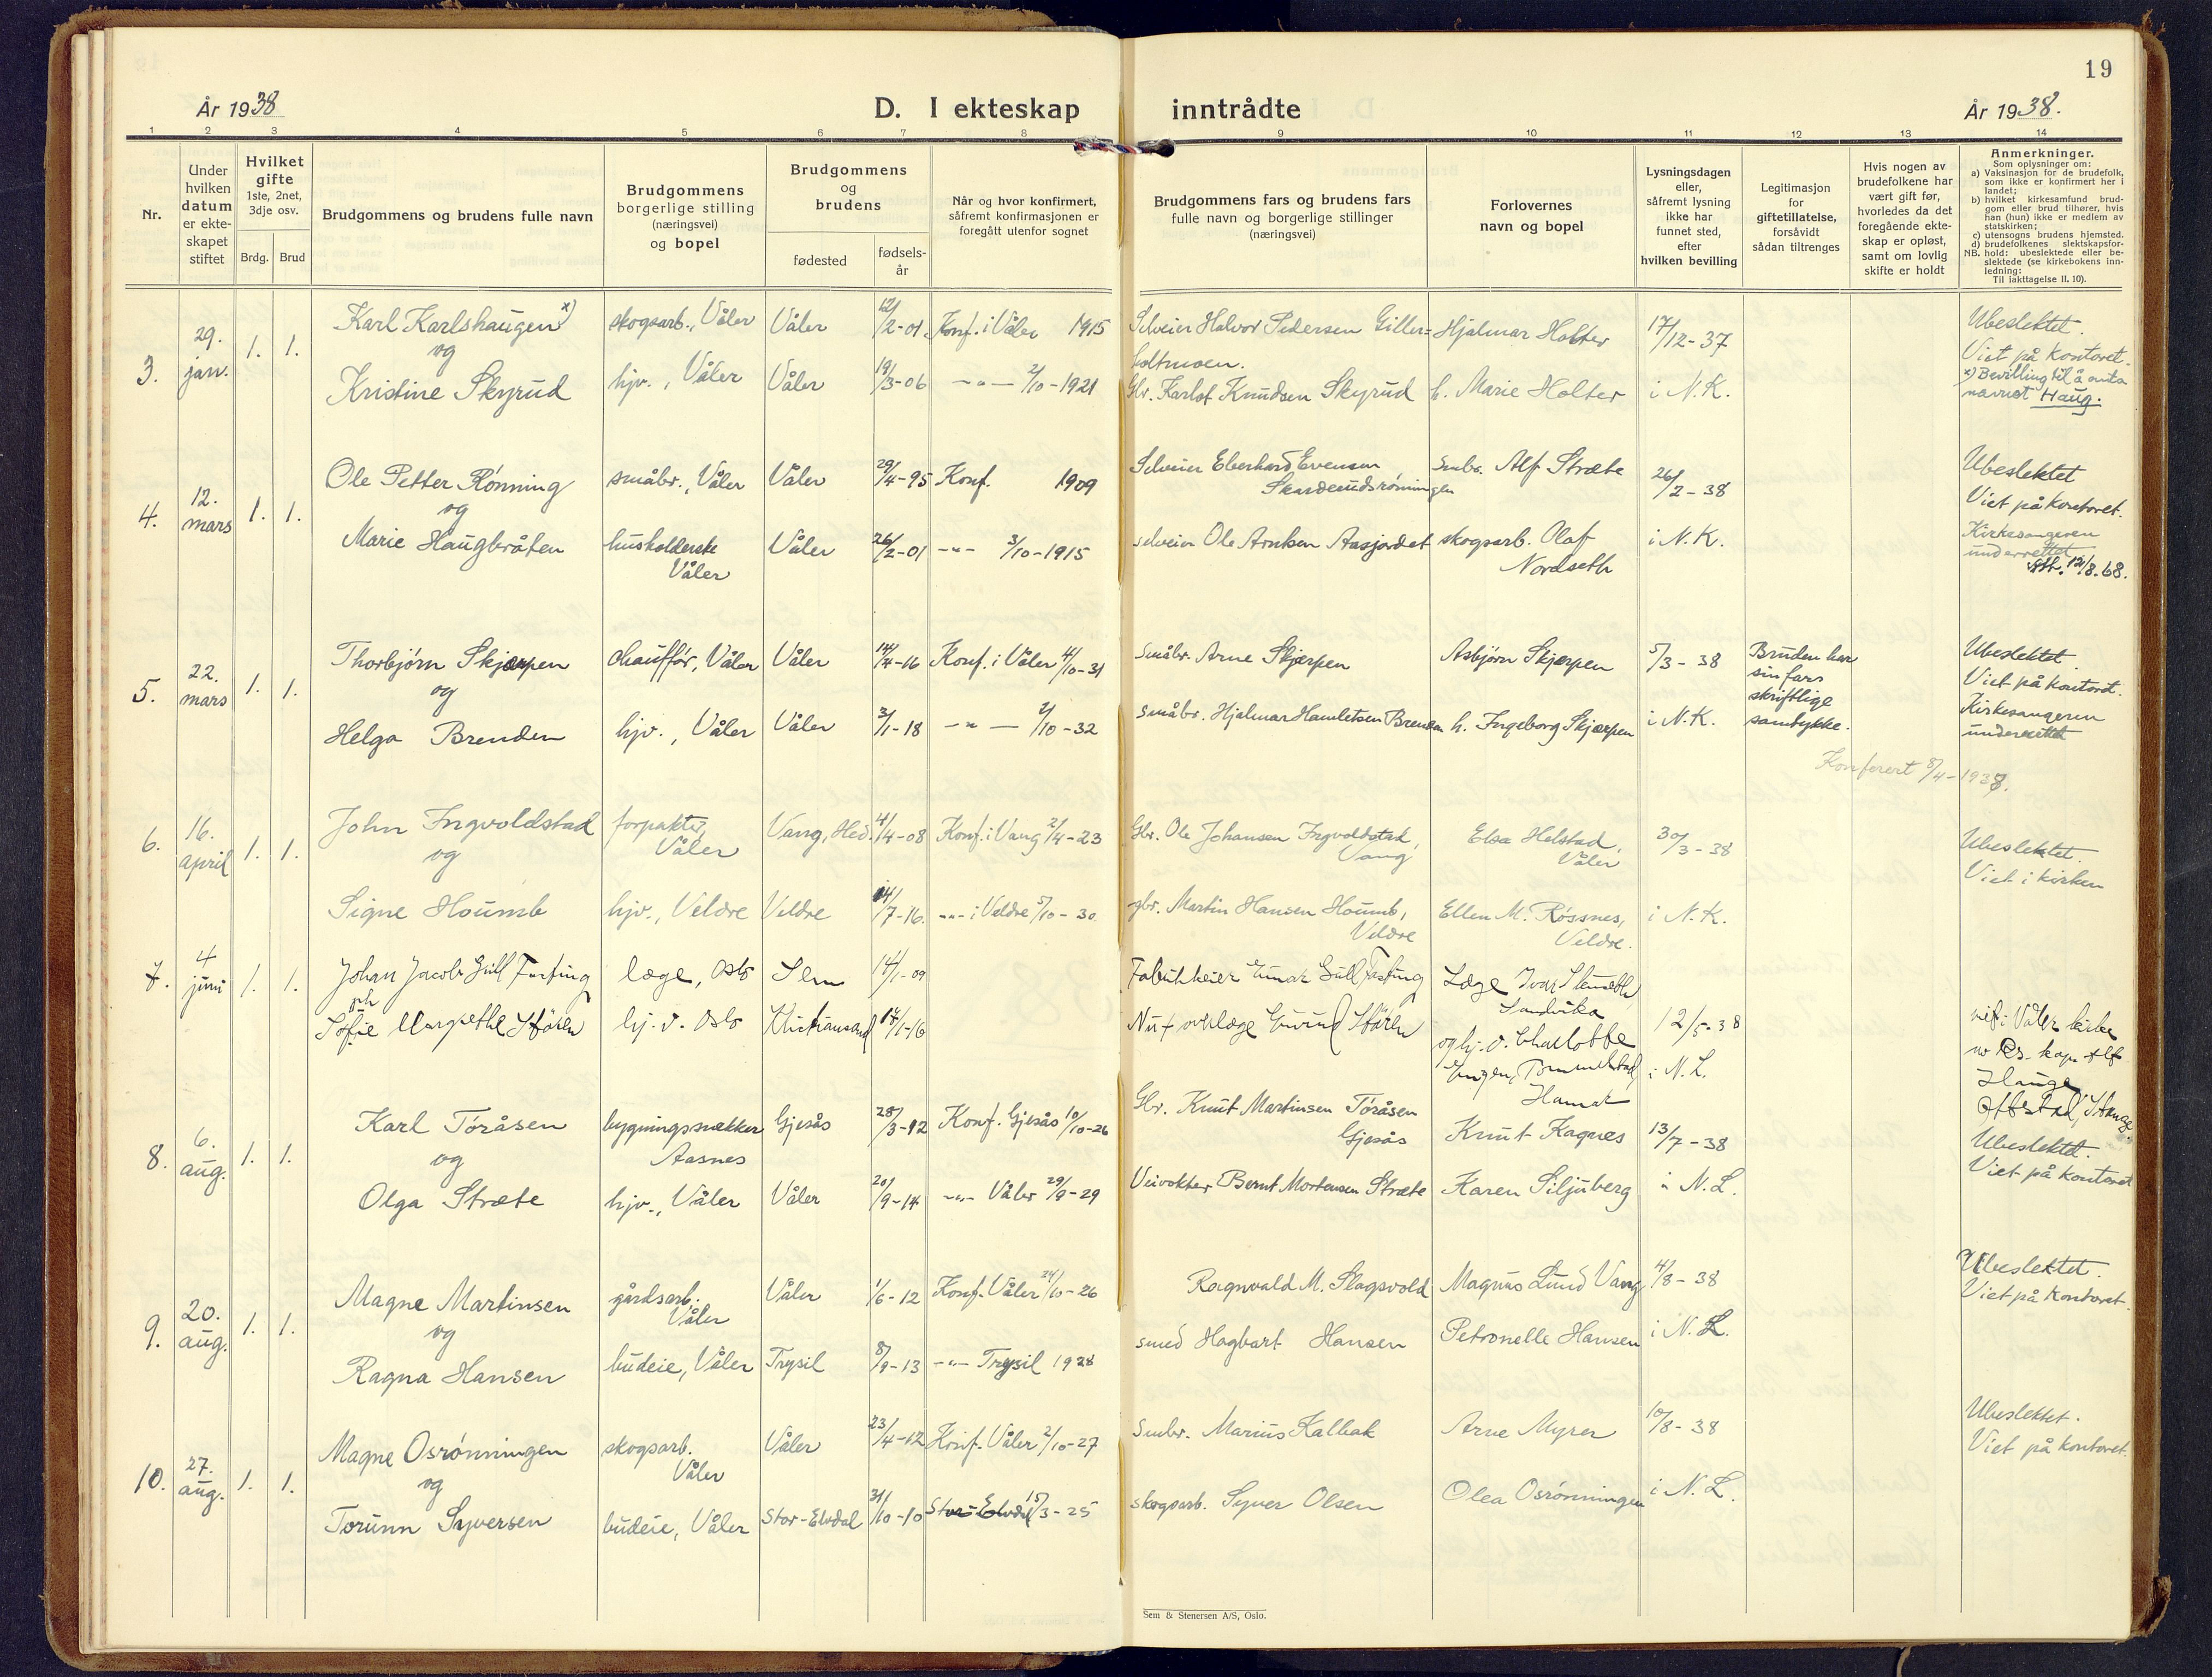 19
År 1938
D. I ekteskap inntrådte
År 1938.
1 2 3 4 5 6 7 8 9 10 11 12 13 14
Nr.
Under
hvilken
datum
er ekte-
skapet
stiftet
Hvilket
gifte
1ste, 2net,
3dje osv.
Brdg. Brud
Brudgommens og brudens fulle navn
Brudgommens
borgerlige stilling
(næringsvei)
og bopel
Brudgommens
og
brudens
fødested
fødsels-
år
Når og hvor konfirmert,
såfremt konfirmasjonen er
foregått utenfor sognet
Brudgommens fars og brudens fars
fulle navn og borgerlige stillinger
(næringsvei)
Forlovernes
navn og bopel
Lysningsdagen
eller,
såfremt lysning
ikke har
funnet sted,
efter
hvilken bevilling
Legitimasjon
for
giftetillatelse,
forsåvidt
sådan tiltrenges
Hvis nogen av
brudefolkene har
vært gift før,
hvorledes da det
foregående ekte-
skap er opløst,
samt om lovlig
skifte er holdt
Anmerkninger.
Som oplysninger om:
a) Vaksinasjon for de brudefolk,
som ikke er konfirmert her i
landet;
b) hvilket kirkesamfund brud-
gom eller brud tilhører, hvis
han (hun) ikke er medlem av
statskirken;
c) utensogns brudens hjemsted.
d) brudefolkenes slektskapsfor-
NB. hold: ubeslektede eller be-
slektede (se kirkebokens inn-
ledning:
Til iakttagelse II. 10).
3. 29. jan. 1. 1.
Karl Karlshaugen x) skogsarb., Våler Våler 12/2-01 Konf. i Våler 1915 Selveier Halvor Pedersen Giller= Hjalmar Holter 17/12-37
og
Kristine Skyrud hjv., Våler Våler 19/3-06 -"- 2/10-1921 Gbr. Karlot Knudsen Skyrud h. Marie Holter i N.K.
Ubeslektet.
Viet på kontoret.
x) Bevilling til å anta
navnet Haug.
4. 12. mars 1. 1.
Ole Petter Rønning småbr., Våler Våler 29/4-95 Konf. 1909 Selveier Eberhard Evensen Smbr. Alf Stræte 26/2-38
Skarderudsrønningen
og
Marie Haugbråten husholderske Våler Våler 26/2-01 -"- 3/10-1915 selveier Ole Arntsen Aasjordet skogsarb. Olaf Nordseth i N.K.
Ubeslektet
Viet på kontoret.
Kirkesangeren
underrettet
12/8.68.
5. 22. mars 1. 1.
Thorbjørn Skjærpen chauffør, Våler Våler 14/4-16 Konf. i Våler 4/10-31 Småbr. Arne Skjærpen Asbjørn Skjærpen 5/3-38
og
Helga Brenden hjv., Våler Våler 3/1-18 -"- 2/10-32 småbr. Hjalmar Hamletsen Brenden h. Ingeborg Skjærpen i N.K.
Bruden har
sin fars
skriftlige
samtykke.
Ubeslektet
Viet på kontoret.
Kirkesangeren
underrettet
Konferert 8/4-1938.
6. 16. april 1. 1.
John Ingvoldstad forpakter, Våler Vang, Hed. 4/4-08 Konf. i Vang 2/4-23 Gbr. Ole Johansen Ingvoldstad, Vang Elsa Helstad, Våler 30/3-38
og
Signe Houmb hjv., Veldre Veldre 14/7-16. -"- i Veldre 5/10-30 gbr. Martin Hansen Houmb, Veldre Ellen M. Røssnes, Veldre. i N.K.
Ubeslektet.
Viet i kirken
7. 4 juni 1. 1.
Johan Jacob Gill Fasting læge, Oslo Sem 14/1-09 Einar Gill Fasting Læge Ivar
Sandvika
og
Sofie Margrethe Stören hj. v. Oslo Kristiansand 14/1-16 overlæge Eivind Stören og hj. v. Charlotte 12/5-38
Engen, Hamar i N.L.
viet i Våler kirke
av Res. kap. Alf
Hauge
Ottestad, Stange.
8. 6. aug. 1. 1.
Karl Tøråsen bygningssnekker Aasnes Gjesås 28/3-12 Konf. Gjesås 10/10-26 Gbr. Knut Martinsen Tøråsen Gjesås Knut Kagnes 13/7-38
og
Olga Stræte hjv., Våler Våler 20/9-14 -"- Våler 29/9-29 Veivokter Bernt Mortensen Stræte Karen Siljuberg i N.L.
Ubeslektet.
Viet på kontoret
9. 20. aug. 1. 1.
Magne Martinsen gårdsarb. Våler Våler 1/6-12 Konf. Våler 24/10-26 Ragnvald M. Slagsvold Magnus Lund Vang 4/8-38
og
Ragna Hansen budeie, Våler Trysil 8/9-13 -"- Trysil 1928 smed Hagbart Hansen Petronelle Hansen i N.L.
Ubeslektet.
Viet på kontoret.
10. 27. aug. 1. 1.
Magne Osrønningen skogsarb. Våler Våler 23/4-12 Konf. Våler 2/10-27 Smbr. Marius Kalbak Arne Myrer 10/8-38
og
Torunn Syversen budeie, Våler Stor-Elvdal 31/10-10 Stor-Elvdal 15/3-25 skogsarb. Syver Olsen Olea Osrønningen i N.L.
Ubeslektet.
Viet på kontoret.
Sem & Stenersen A/S, Oslo.